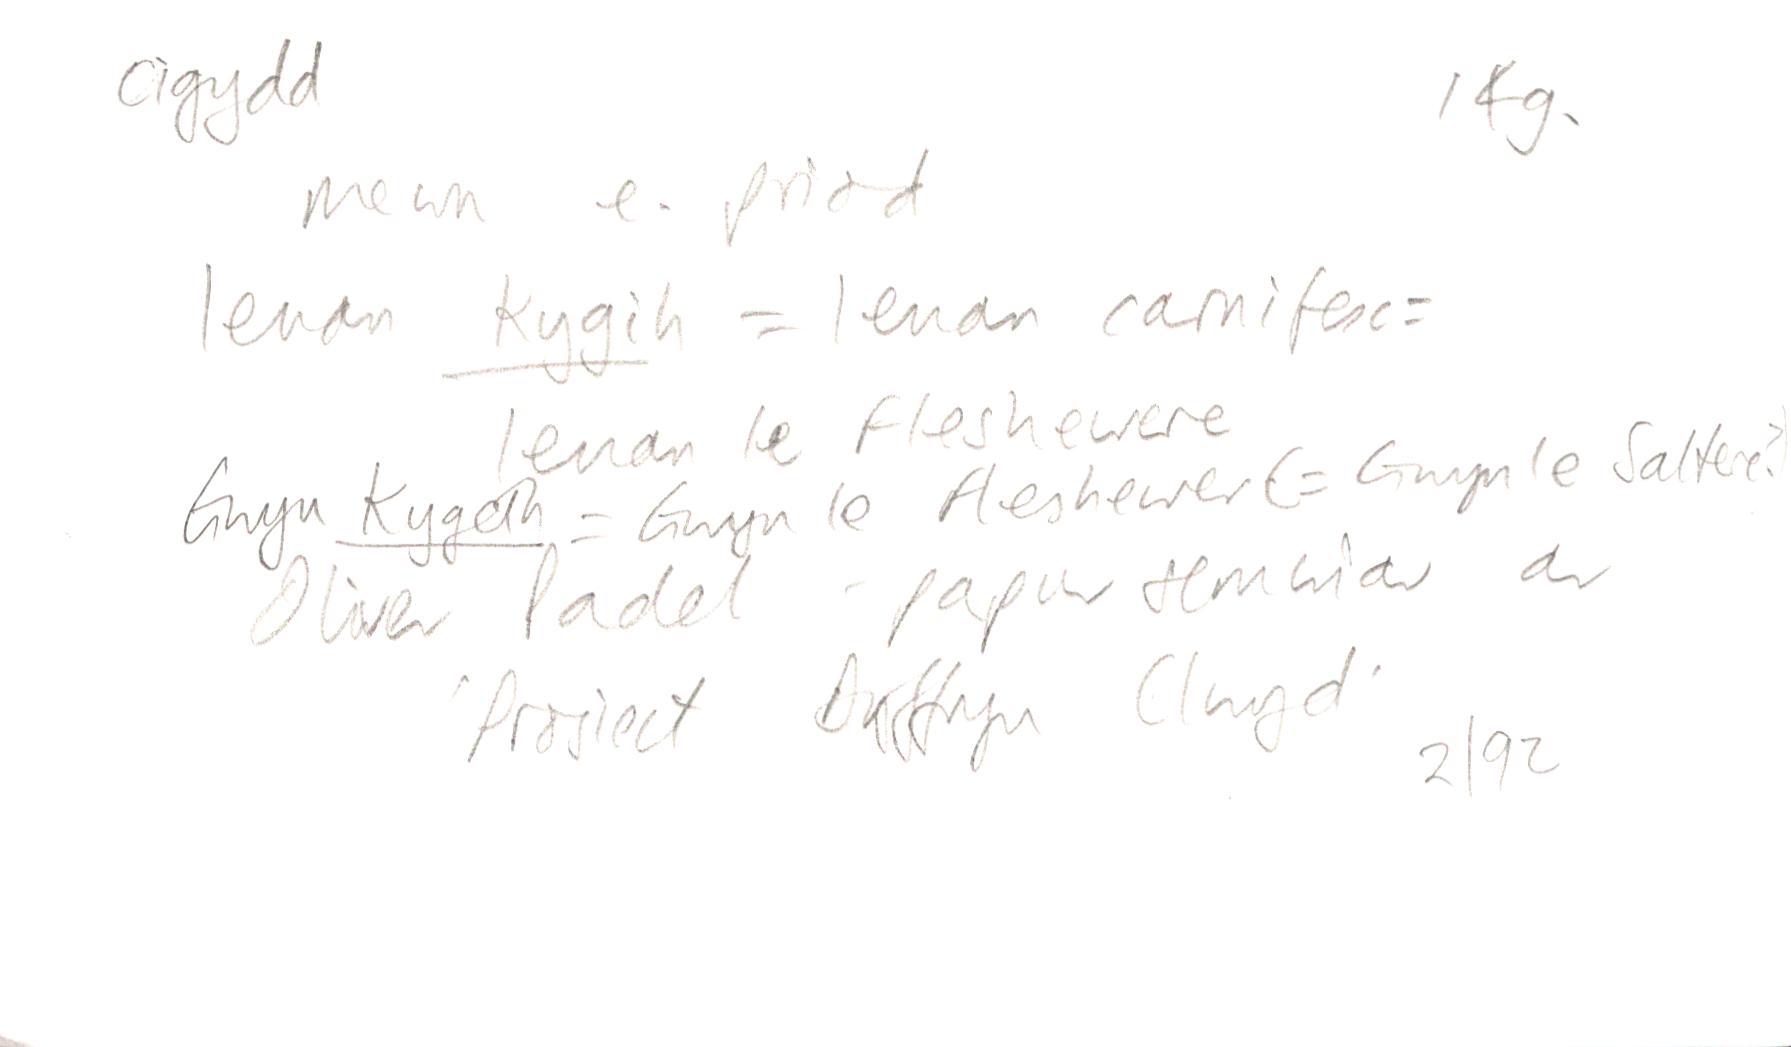 cigydd 1 Kg.
mewn e. priod
Ieuan Kygih = Ieuan carnifex =
Ieuan le Fleshewere
Gwyn Kygeth = Gwyn le fleshewer (= Gwyn le Saltere?)
Oliver Padel - papur seminar ar
'Prosiect Dyffryn Clwyd'
2/92